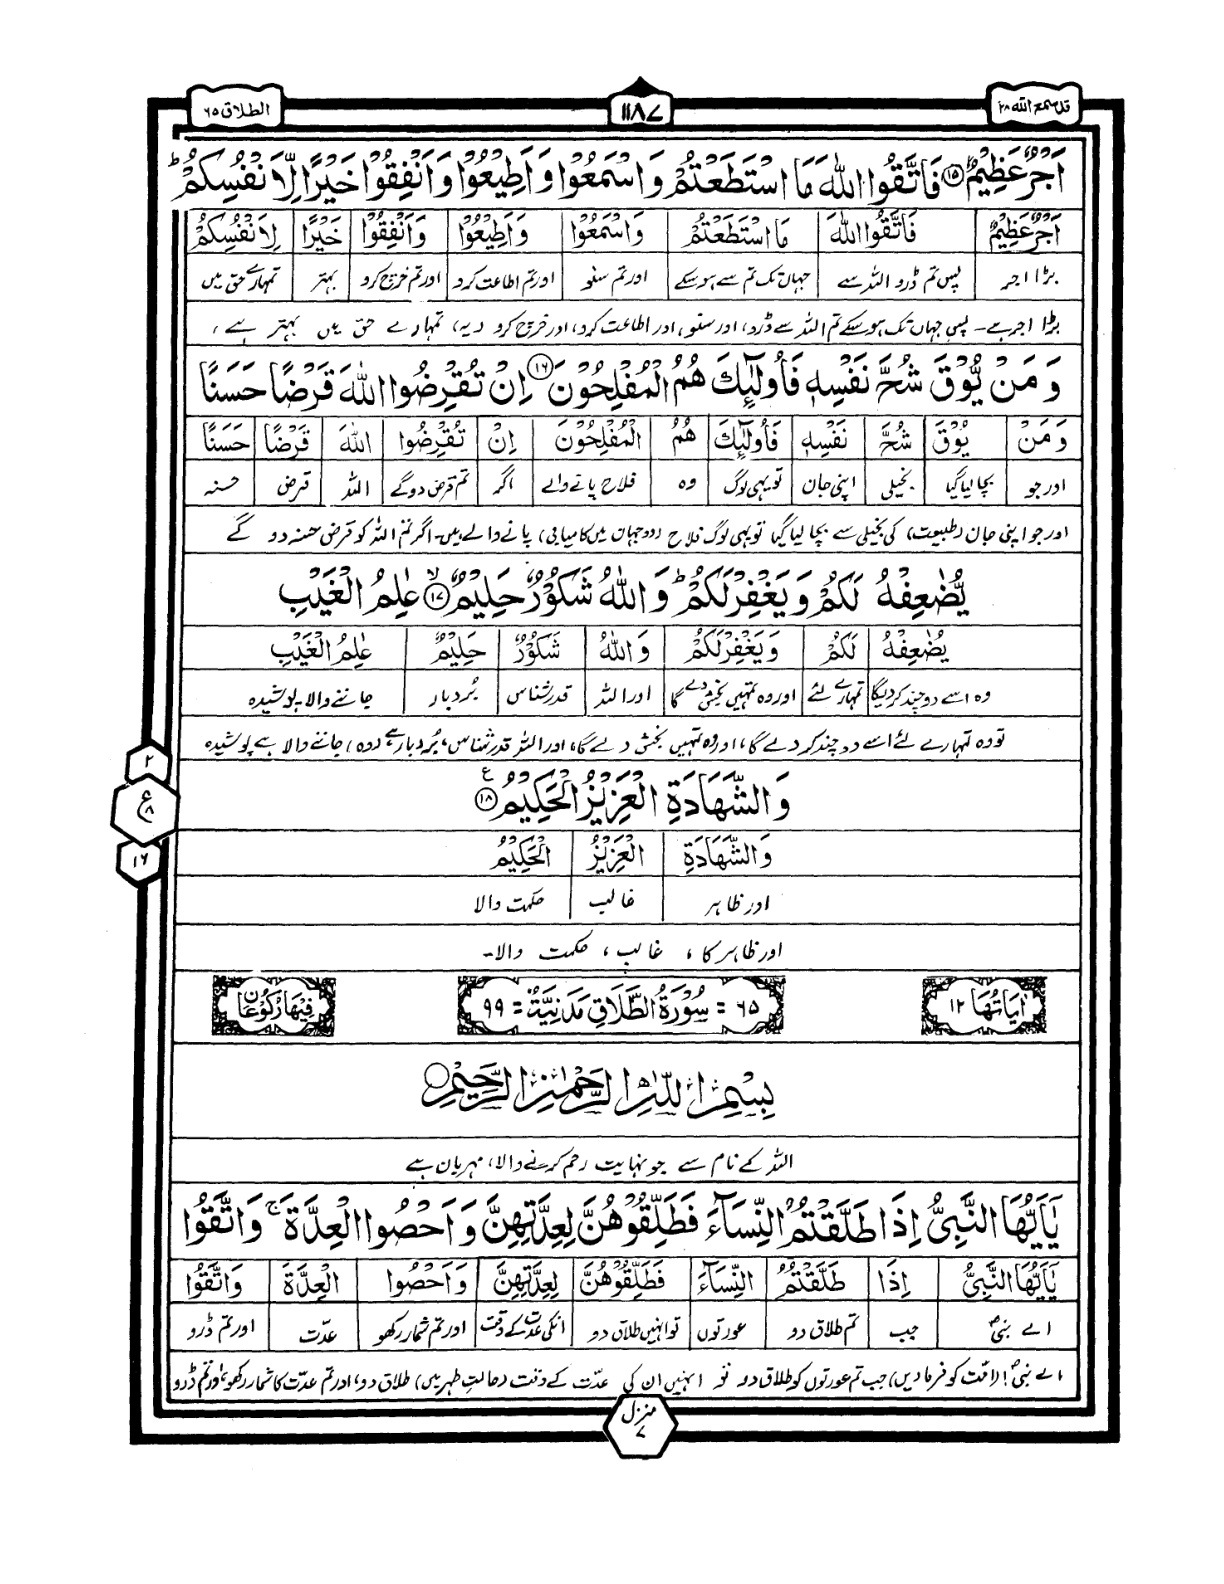 قد سمع الله ۲۸
۱۱۸۷
الطلاق ۶۵
اَجْرٌ عَظِيْمٌ ۝۱۵ فَاتَّقُوا اللّٰهَ مَا اسْتَطَعْتُمْ وَاسْمَعُوْا وَاَطِيْعُوْا وَاَنْفِقُوْا خَيْرًا لِّاَنْفُسِكُمْ ؕ
اَجْرٌ عَظِيْمٌ فَاتَّقُوا اللّٰهَ مَا اسْتَطَعْتُمْ وَاسْمَعُوْا وَاَطِيْعُوْا وَاَنْفِقُوْا خَيْرًا لِاَنْفُسِكُمْ
بڑا اجر پس تم ڈرو اللہ سے جہاں تک تم سے ہو سکے اور تم سنو اور تم اطاعت کرو اور تم خرچ کرو بہتر تمہارے حق میں
بڑا اجر ہے۔ پس جہاں تک ہو سکے تم اللہ سے ڈرو، اور سنو، اور اطاعت کرو، اور خرچ کرو یہ، تمہارے حق میں بہتر ہے،
وَمَنْ يُّوْقَ شُحَّ نَفْسِهٖ فَاُولٰٓئِكَ هُمُ الْمُفْلِحُوْنَ ۝۱۶ اِنْ تُقْرِضُوا اللّٰهَ قَرْضًا حَسَنًا
وَمَنْ يُوْقَ شُحَّ نَفْسِهٖ فَاُولٰٓئِكَ هُمُ الْمُفْلِحُوْنَ اِنْ تُقْرِضُوا اللّٰهَ قَرْضًا حَسَنًا
اور جو بچا لیا گیا بخیلی اپنی جان تو یہی لوگ وہ فلاح پانے والے اگر تم قرض دو گے اللہ قرض حسنہ
اور جو اپنی جان (طبیعت) کی بخیلی سے بچا لیا گیا تو یہی لوگ فلاح (دو جہان میں کامیابی) پانے والے ہیں۔ اگر تم اللہ کو قرض حسنہ دو گے
يُّضٰعِفْهُ لَكُمْ وَيَغْفِرْ لَكُمْ ؕ وَاللّٰهُ شَكُوْرٌ حَلِيْمٌ ۝۱۷ۙ عٰلِمُ الْغَيْبِ
يُضٰعِفْهُ لَكُمْ وَيَغْفِرْ لَكُمْ وَاللّٰهُ شَكُوْرٌ حَلِيْمٌ عٰلِمُ الْغَيْبِ
وہ اسے دو چند کر دیگا تمہارے لئے اور وہ تمہیں بخش دے گا اور اللہ قدر شناس بُردبار جاننے والا۔ پوشیدہ
تو وہ تمہارے لئے اسے دو چند کر دے گا، اور وہ تمہیں بخش دے گا، اور اللہ قدر شناس، بُردبار ہے (وہ) جاننے والا ہے پوشیدہ
۲
ع
۸
۱۶
وَالشَّهَادَةِ الْعَزِيْزُ الْحَكِيْمُ ۝۱۸ۧ
وَالشَّهَادَةِ الْعَزِيْزُ الْحَكِيْمُ
اور ظاہر غالب حکمت والا
اور ظاہر کا، غالب، حکمت والا۔
اٰيَاتُهَا ۱۲ ۶۵ = سُوْرَةُ الطَّلَاقِ مَدَنِيَّةٌ = ۹۹ فِيْهَا رُكُوْعَانِ
بِسْمِ اللّٰهِ الرَّحْمٰنِ الرَّحِيْمِ
اللہ کے نام سے جو نہایت رحم کرنے والا، مہربان ہے
يٰاَيُّهَا النَّبِىُّ اِذَا طَلَّقْتُمُ النِّسَآءَ فَطَلِّقُوْهُنَّ لِعِدَّتِهِنَّ وَاَحْصُوا الْعِدَّةَ ۚ وَاتَّقُوْا
يٰاَيُّهَا النَّبِىُّ اِذَا طَلَّقْتُمُ النِّسَآءَ فَطَلِّقُوْهُنَّ لِعِدَّتِهِنَّ وَاَحْصُوا الْعِدَّةَ وَاتَّقُوْا
اے نبیؐ جب تم طلاق دو عورتوں تو انہیں طلاق دو انکی عدت کے وقت اور تم شمار رکھو عدّت اور تم ڈرو
اے نبیؐ! (امت کو فرما دیں) جب تم عورتوں کو طلاق دو تو انہیں ان کی عدّت کے وقت (حالتِ طہر میں) طلاق دو، اور تم عدّت کا شمار رکھو، اور تم ڈرو
منزل
۷